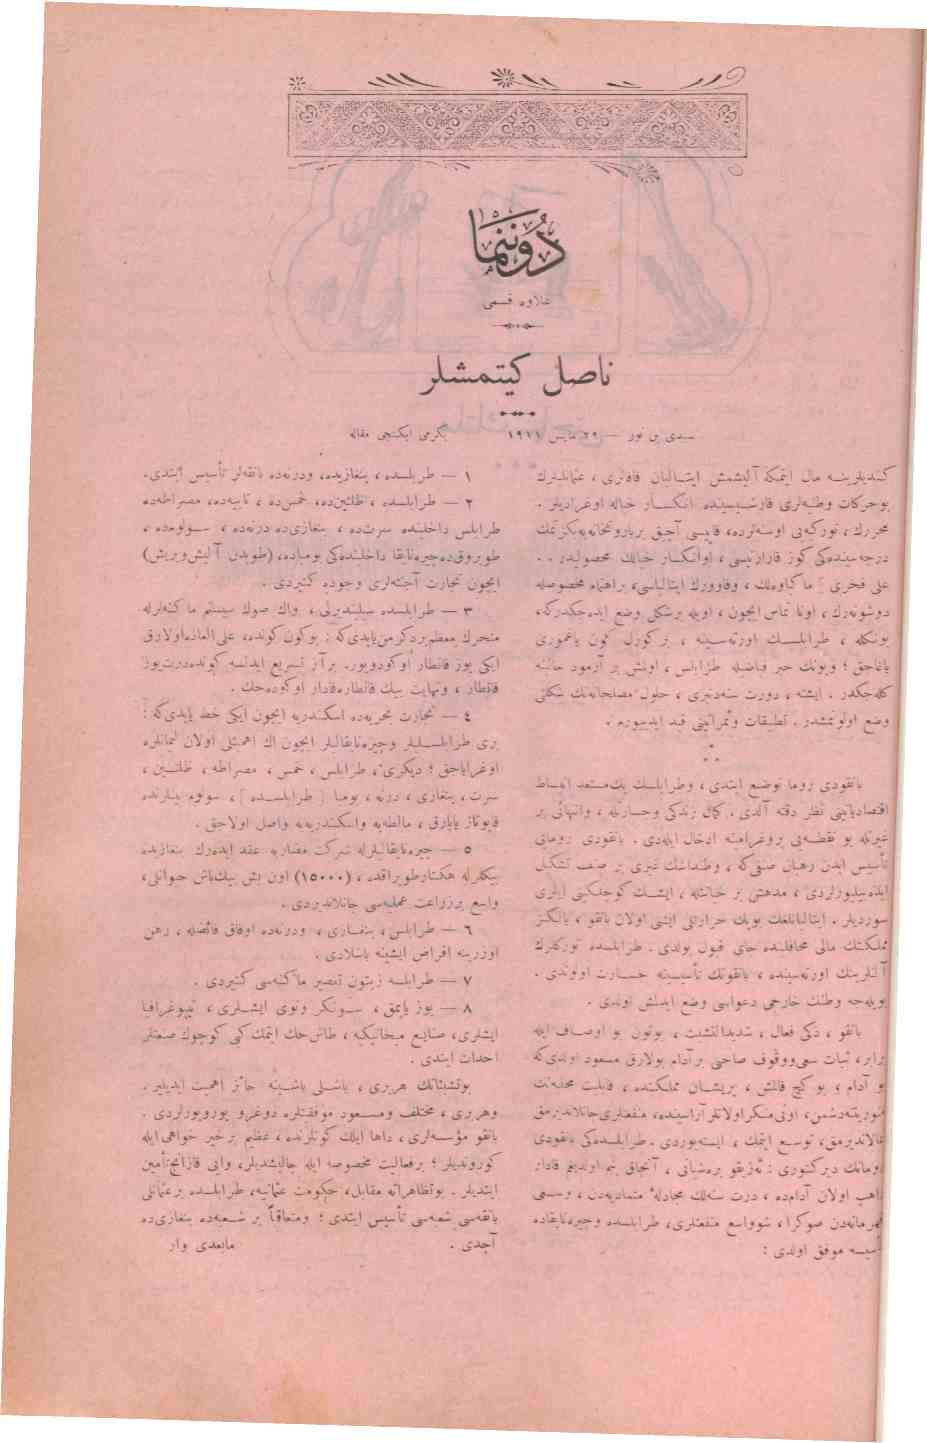 دوننما
علاوه قسمی
ناصل کیتمشلر
سیدی بن نور — ٢٩ مایس ١٩١١
یکرمی ایکنجی مقاله
کندیلرینه مال ایتمکه آلیشمش ایتالیان فافلری ، عثمانلیلرك
بوحرکات وطنه‌لری قارشیسنده انکسار خیاله اوغرادیلر .
درجه‌سنده‌کی کوز قارارتیسی ، اوانکسار خیالك محصولیدر . .
دوشونه‌رك ، اونا تماس ایچون ، اویله برشکل وضع ایده‌جکدرکه،
بونکله ، طرابلسك اورته‌سینه ، برکورل کون یاغموری
کله‌جکدر . ایشته ، دورت سنه‌دنبری ، حلول مصلحانه‌نك شکلی
وضع اولونمشدر. تطبیقات وثمراتینی قید ایدییورم .
بانقودی روما توضع ایتدی ، وطرابلسك پك‌مستعد انبساط
اقتصادیاتینی نظر دقته آلدی . کمال زندکی وجسارتله ، وانهائی بر
غیرتله بو نقطه‌یی پروغرامنه ادخال ایله‌دی . بانقودی رومایی
تأسیس ایدن رهبان صنفی‌که ، وطنداشك غیری بر صنف تشکیل
ایده‌بیلیورلردی ، مدهشی بر خیانتله ، ایشك کوجلکینی ایلری
سوردیلر . ایتالیانلغك بویك حرارتلی ایشی اولان بانقو ، یالکز
مملکتك مالی محافلنده جای قبول بولدی . طرابلسده تورکلرك
آلرینك اورته‌سینده ، بانقونك تأسیسینه جسارت اولوندی .
بویله‌جه وطنك خارجی دعواسی وضع ایدلمش اولدی .
بانقو ، ذکی فعال ، شدیدالتشبث ، بوتون بو اوصاف ایله
برابر ، ثبات سعی‌ووقوف صاحبی برآدام بولارق مسعود اولدی‌که
بو آدام ، بوکیچ قالمش ، پریشان مملکتده ، قابلیت محلیه‌نك
جالاندیرمق، توسیع ایتمك ، ایسته‌یوردی . طرابلسده‌کی بانقودی
ذاهب اولان آدام‌ده ، درت سنه‌لك مجادلهٔ متمادیه‌دن ، وسعی
قهرمانه‌دن صوکرا ، شوواسع منفعتلری، طرابلسده وجیره‌نائقاده
تأسیسه موفق اولدی :
١ — طرابلسده ، بنغازیده، ودرنه‌ده بانقه‌لر تأسیس ایتدی.
٢ — طرابلسده ، ظلیتن‌ده، خمس‌ده ، تاییه‌ده، مصراطه‌ده
طرابلس داخلنده سرت‌ده ، بنغازی‌ده درنه‌ده ، سولوم‌ده ،
طوبروق‌ده‌جیره‌نائقا داخلنده‌کی بومباده، (طویدن آلیش‌ویریش)
ایچون تجارت آجنته‌لری وجوده کتیردی .
٣ — طرابلسده سیلیندیرلی ، واك صوك سیستم ماکنه‌لرله
متحرك معظم بردکرمن‌یاپدی‌که : بوکون‌کونده، علی‌العاده‌اولارق
ایکی یوز قانطار اوکودویور. برآز تسریع ایدلسه کونده‌درت‌یوز
قانطار ، ونهایت بیك قانطاره‌قادار اوکوده‌جك .
٤ — تجارت بحریه‌ده اسکندریه ایچون ایکی خط یاپدی‌که :
بری طرابلسلیلر وجیره‌نائقالیلر ایچون اك اهمیتلی اولان لیمانلره
اوغرایاجق ؛ دیکری ، طرابلس ، خمس ، مصراطه ، ظلیتن ،
سرت ، بنغازی ، درنه ، بومبا [ طرابلسده ] ، سولوم بینلرنده
قابوتاژ یاپارق ، مالطه‌یه واسکندریه‌یه واصل اولاجق .
٥ — جیره‌نائقالیلرله شرکت مضاربه عقد ایده‌رك بنغازیده
بیکلرله هکتارطوپراقده ، (١٥٠٠٠) اون بش بیك‌باش حیوانلی،
واسع برزراعت عملیه‌سی جانلاندیردی .
٦ — طرابلس ، بنغازی ، ودرنه‌ده اوفاق فائضله ، رهن
اوزرینه اقراض ایشینه باشلادی .
٧ — طرابلسه زیتون تعصیر ماکنه‌سی کتیردی .
٨ — بوز یاپمق ، سونکر وتوی ایشلری ، تیپوغرافیا
ایشلری، صنایع میخانیکیه ، طاش‌حك ایتمك کبی کوچوك صنعتلر
احداث ایتدی .
بوتشبثاتك هربری ، باشلی باشینه حائز اهمیت ایدیلیر .
وهربری ، مختلف ومسعود موفقیتلره دوغرو یوروبورلردی .
بانقو مؤسسه‌لری ، داها ایلك کونلرنده ، عظیم برخیر خواهی ایله
کوروندیلر ؛ برفعالیت مخصوصه ایله چالیشدیلر، وایی قازانج‌تأمین
ایتدیلر . بوتظاهراته مقابل، حکومت عثمانیه، طرابلسده برعثمانلی
بانقه‌سی شعبه‌سی تأسیس ایتدی ؛ ومتعاقباً بر شعبه‌ده بنغازی‌ده
آچدی .
مابعدی وار